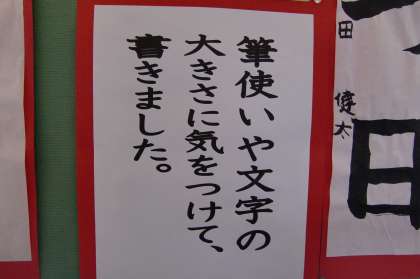 筆使いや文字の
大きさに気をつけて、
書きました。
田
健太
日